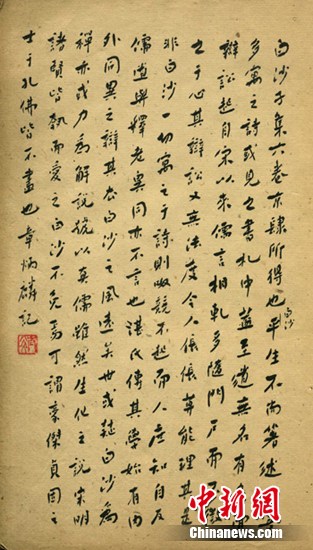 白沙子集六卷京肆所得也白沙平生不而箸述意
多寓之诗或见之書札中蓋至道無名有
辩訟起自宋以来儒言相軋多隨門戶而
之于心其辯訟又無法度令人倀倀莫能理其
非白沙一切寓之于詩則畋競不起而人度知自反
儒道與釋老異同亦不言也湛氏傳其學始有內
外同異之辯其衣白沙之風遠矣世或疑白沙為
禪亦或力為解說號以真儒雖然生化之說宋明
諸賢皆執而愛之白沙不免焉可謂豪傑貞固之
士于孔佛皆不盡也章炳麟記
中新网